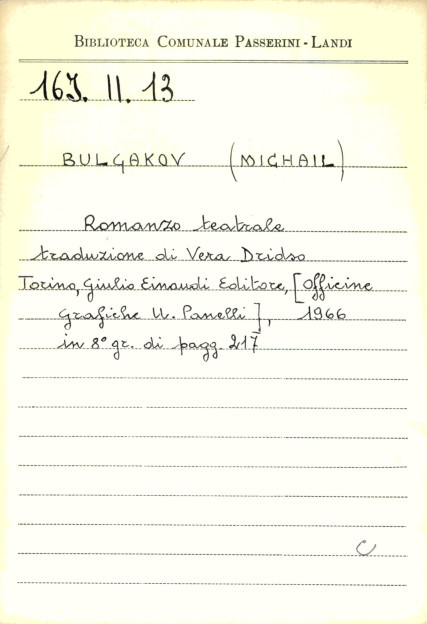 BIBLIOTECA COMUNALE PASSERINI - LANDI
16J. II. 13
BULGAKOV (MICHAIL)
Romanzo teatrale
traduzione di Vera Dridso
Torino, Giulio Einaudi Editore, [Officine
Grafiche U. Panelli], 1966
in 8° gr. di pagg. 217
C